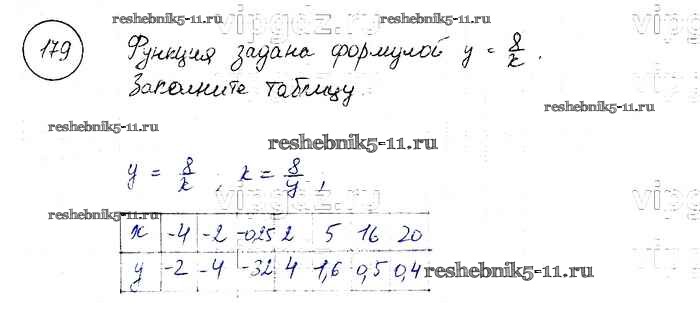 reshebnik5-11.ru
reshebnik5-11.ru
vipgdz.ru
179 Функция задана формулой y = 8/x.
Заполните таблицу
reshebnik5-11.ru
reshebnik5-11.ru
reshebnik5-11.ru
y = 8/x ; x = 8/y ;
vipgdz.ru
reshebnik5-11.ru
x -4 -2 -0,25 2 5 16 20
y -2 -4 -32 4 1,6 0,5 0,4
reshebnik5-11.ru